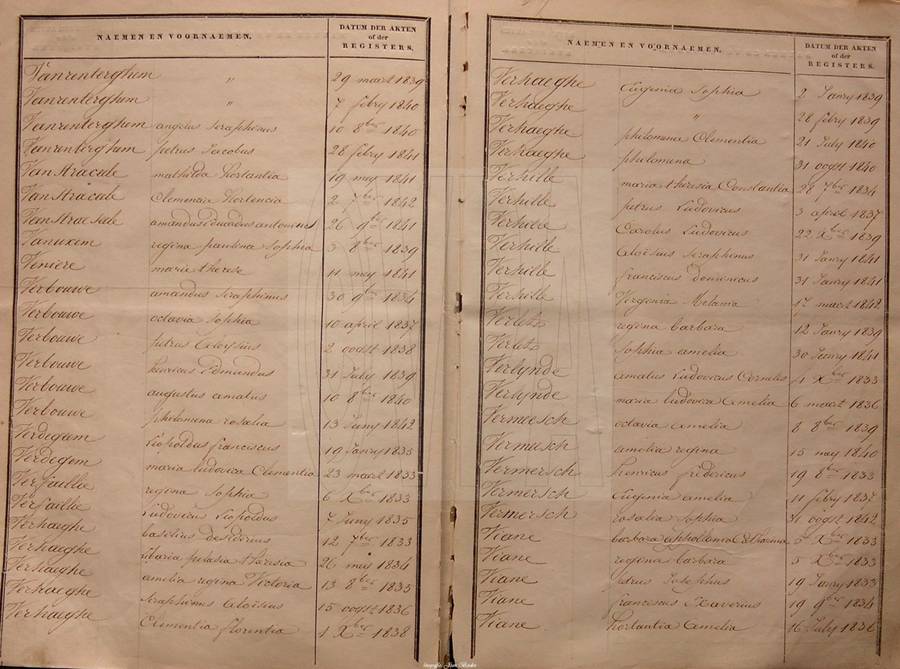 NAEMEN EN VOORNAEMEN.
DATUM DER AKTEN
of der
REGISTERS.
Vanrenterghem " 29 maart 1839
Vanrenterghem " 7 febry 1840
Vanrenterghem angelus seraphinus 10 8ber 1840
Vanrenterghem petrus Jacobus 28 febry 1841
VanStracele mathilda hortantia 19 mey 1841
VanStracele Clemencia hortencia 2 7ber 1842
VanStraesele amandus Eduardus antonius 26 9ber 1841
Vanuxem regina paulina Sophia 3 8ber 1839
Veniere maria therese 11 mey 1841
Verbouwe amandus Seraphinus 30 9ber 1834
Verbouwe octavia Sophia 10 april 1837
Verbouwe petrus Aloysius 2 oogst 1838
Verbouwe henricus Edmundus 31 July 1839
Verbouwe augustus amatus 10 8ber 1840
Verbouwe philomena rosalia 13 Juny 1842
Verdegem Leopoldus franciscus 19 Janry 1835
Verdegem maria ludovica Clementia 23 maart 1833
Verfaillie regina Sophia 6 Xber 1833
Verfaillie Ludovicus Leopoldus 7 Juny 1835
Verhaeghe basilius desiderius 12 7ber 1833
Verhaeghe pelasia theresia 26 mei 1834
Verhaeghe amelia regina Victoria 13 8ber 1835
Verhaeghe Seraphinus Aloïsius 15 oogst 1836
Verhaeghe Clementia florentia 1 Xber 1838
NAEMEN EN VOORNAEMEN.
DATUM DER AKTEN
of der
REGISTERS.
Verhaeghe Eugenia Sophia 2 Janry 1839
Verhaeghe " 28 febry 1839
Verhaeghe philomena Clementia 21 July 1840
Verhaeghe philomena 31 oogst 1840
Verhille maria theresia Constantia 29 7ber 1834
Verhille petrus Ludovicus 3 april 1837
Verhille Carolus Ludovicus 22 Xber 1839
Verhille Aloïsius Seraphinus 31 Janry 1841
Verhille franciscus dominicus 31 Janry 1841
Verhille Virginia Melania 17 maart 1842
Verlet regina barbara 12 Janry 1839
Verlet Sophia amelia 30 Janry 1841
Verlynde amatus Ludovicus Cornelis 1 Xber 1833
Verlynde maria ludovica amelia 6 maart 1836
Vermeesch octavia amelia 8 8ber 1839
Vermeesch amelia regina 15 may 1840
Vermersch henricus fredericus 19 8ber 1833
Vermersch Eugenia amelia 11 febry 1837
Vermersch rosalia Sophia 31 oogst 1842
Viane barbara 5 Xber 1833
Viane regina barbara 5 Xber 1833
Viane petrus Josephus 19 Janry 1833
Viane franciscus Xaverius 19 9ber 1834
Viane hortantia amelia 16 July 1836